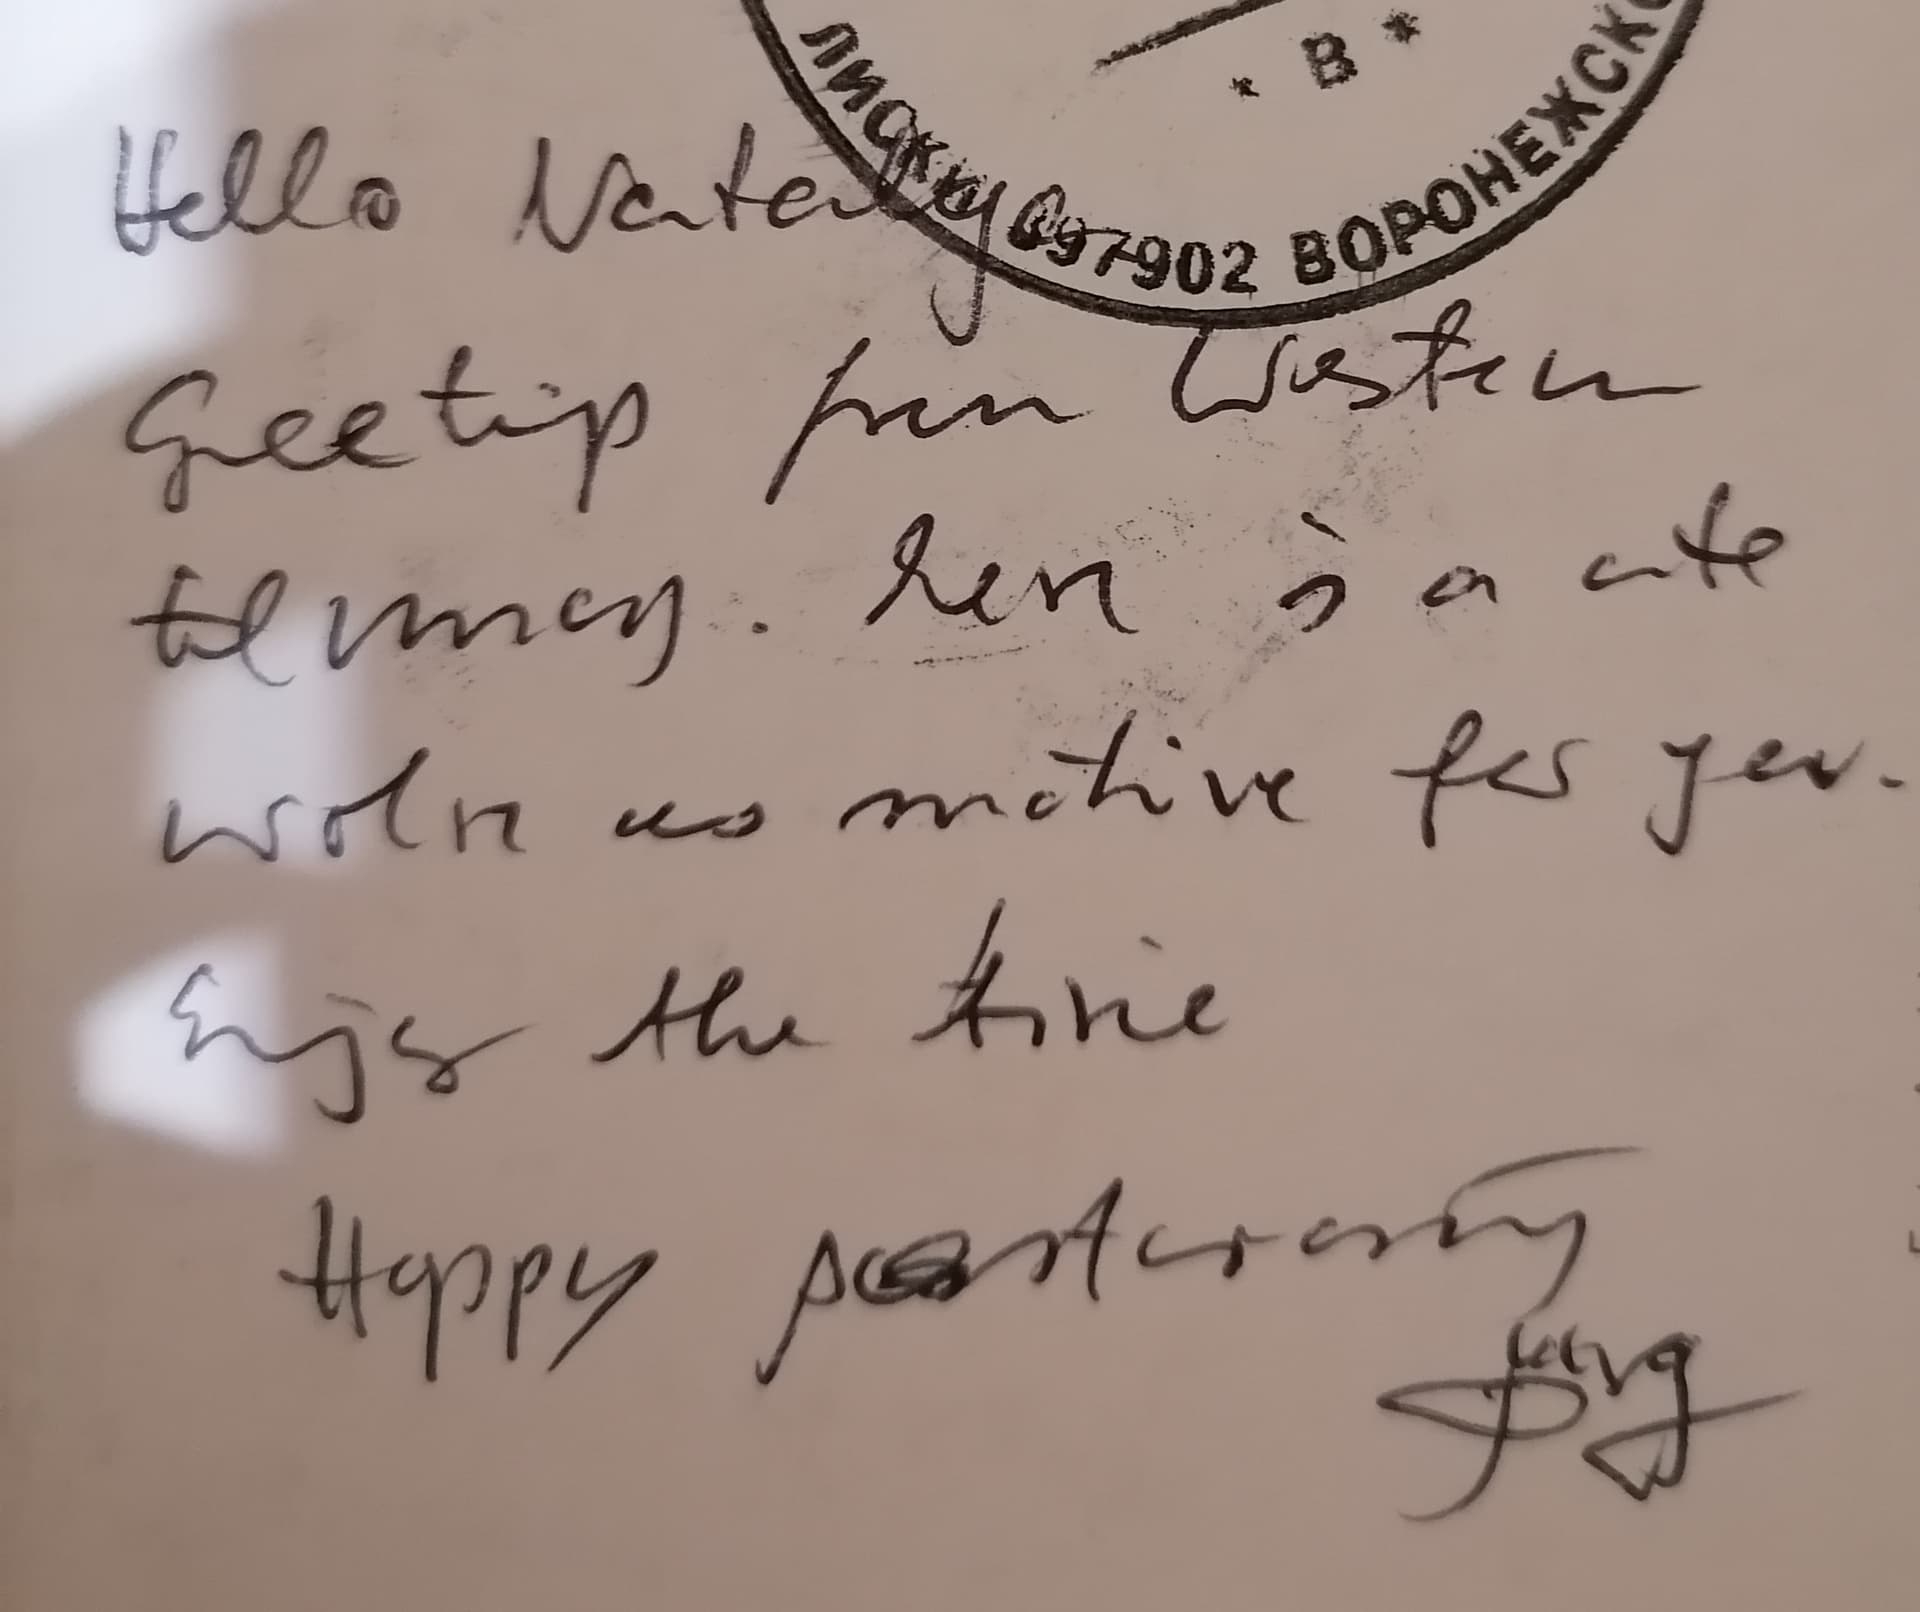 * В *
ЛИСКИ 397902 ВОРОНЕЖСКО
Hello Nataly
Greetings from Western
Germany. Here is a cute
as motive for you.
Enjoy the time
Happy postcrossing